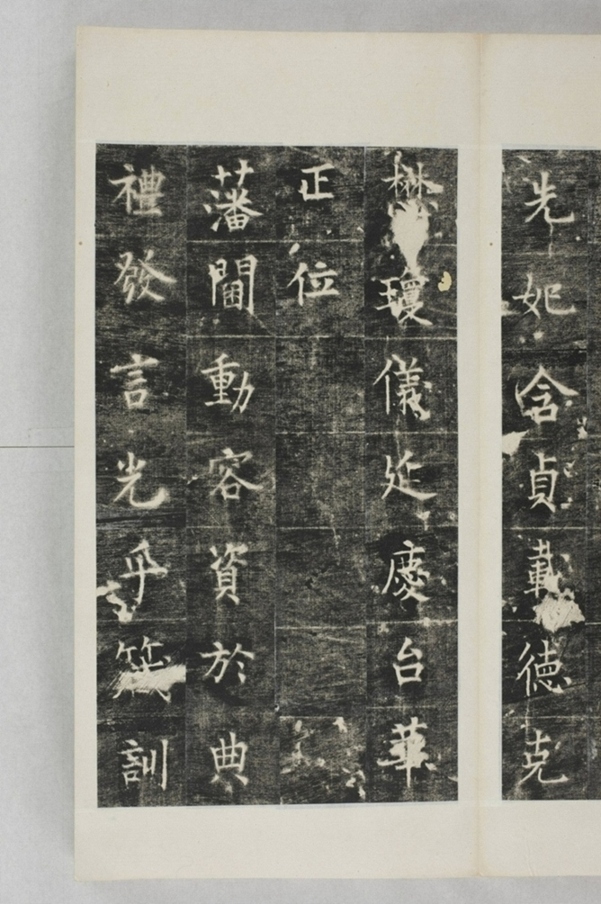 先妣含貞載德克
懋瓊儀延慶台華
正位
藩閫動容資於典
禮發言光乎箴訓